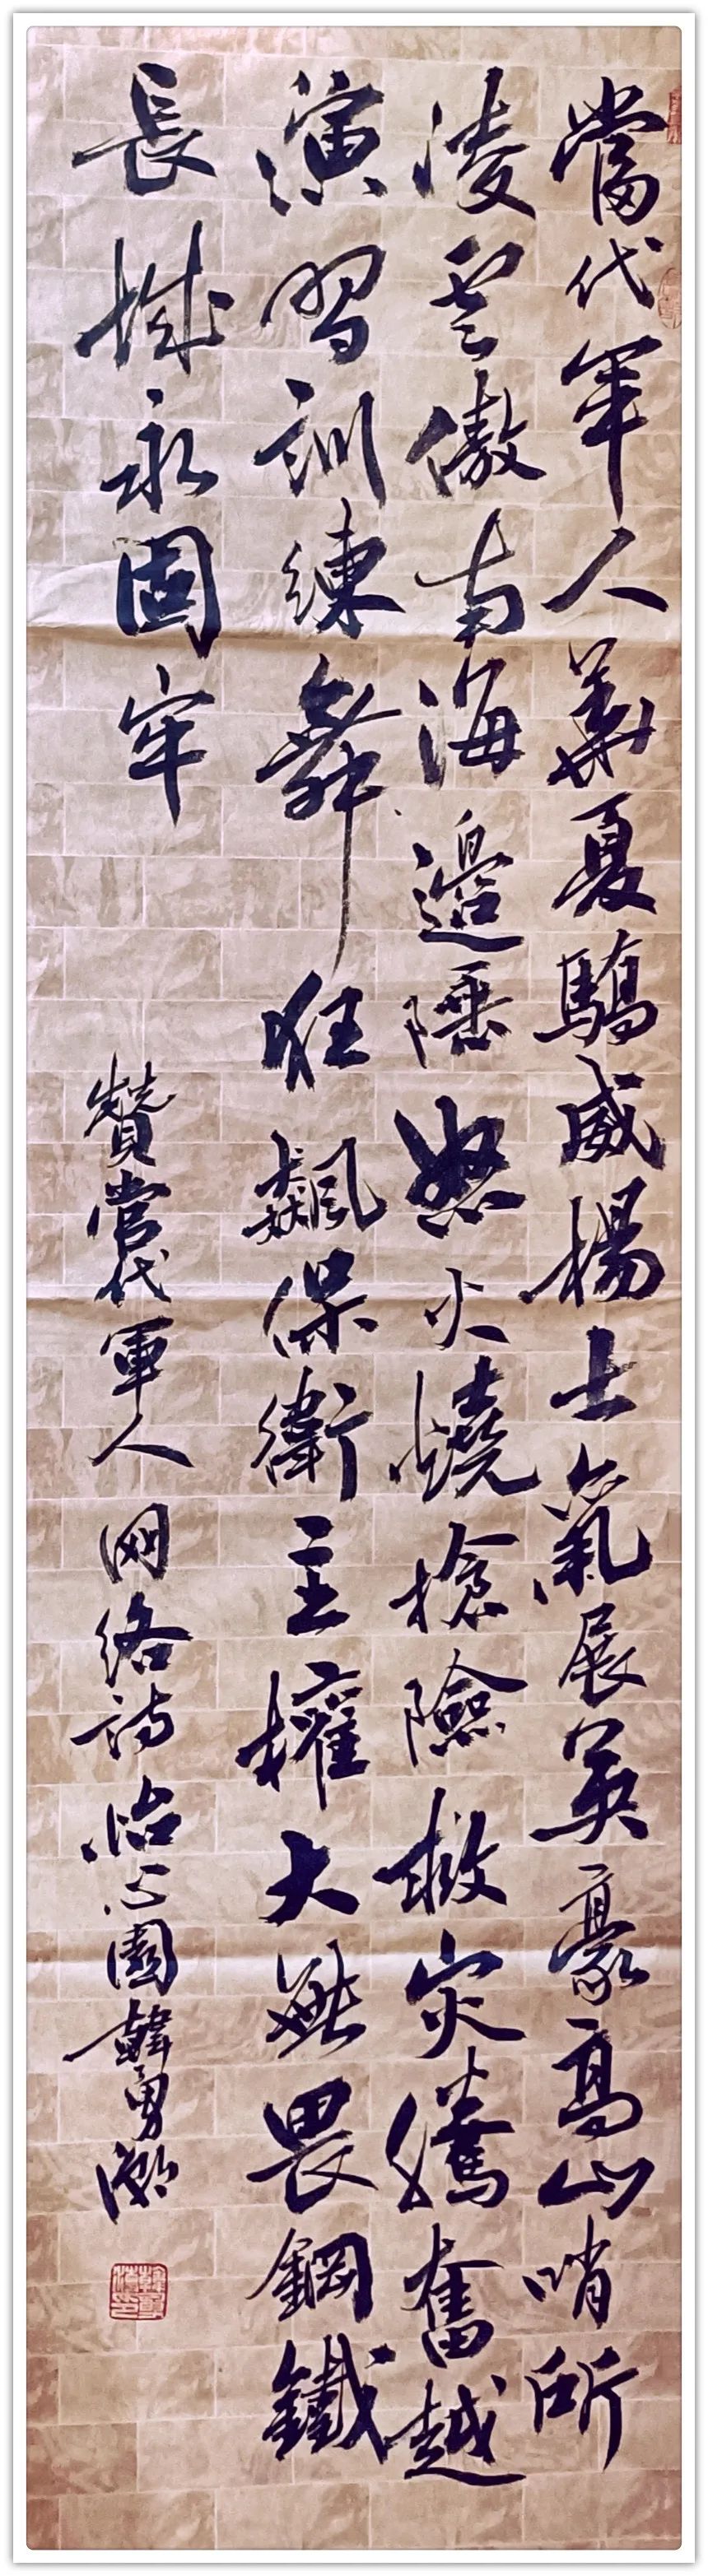 當代軍人華夏驕威揚士氣展英豪高山哨所
凌雲傲南海邊陲怒火燒搶險救灾騰奮越
演習訓練舞狂飆保衛主權大無畏鋼鐵
長城永固牢
贊當代軍人网絡詩怡心園韓勇